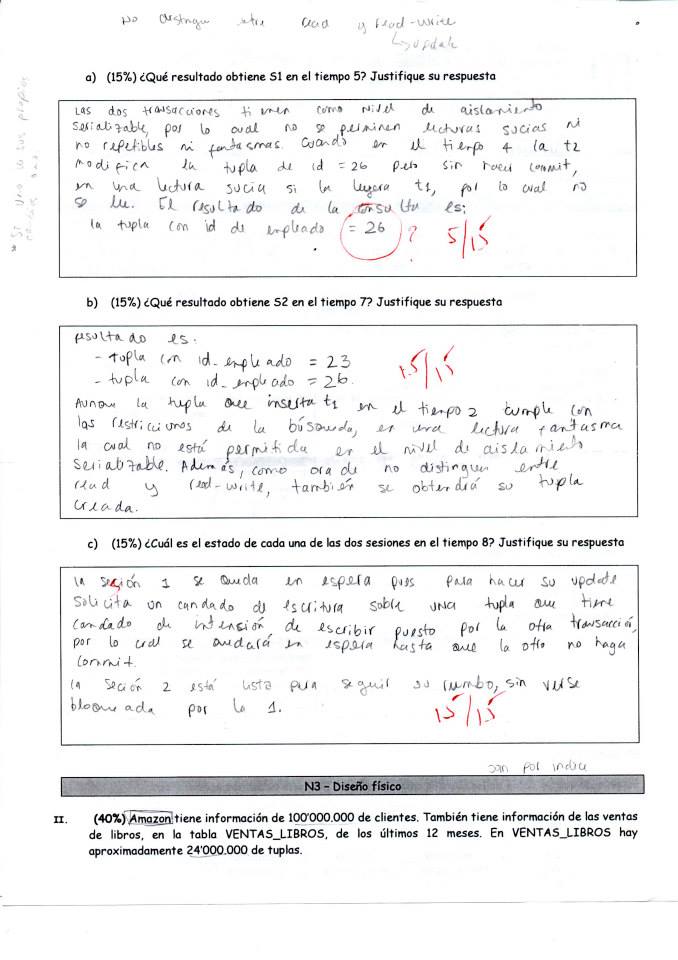 No distingue entre read y read-write
↳ update
a) (15%) ¿Qué resultado obtiene S1 en el tiempo 5? Justifique su respuesta
Las dos transacciones tienen como nivel de aislamiento
serializable, por lo cual no se permiten lecturas sucias ni
no repetibles ni fantasmas. Cuando en el tiempo 4 la t2
modifica la tupla de id = 26 pero sin hacer commit,
en una lectura sucia si la leyera t1, por lo cual no
se lee. El resultado de la consulta es:
la tupla con id de empleado = 26 ? 5/15
b) (15%) ¿Qué resultado obtiene S2 en el tiempo 7? Justifique su respuesta
resultado es.
- tupla con id_empleado = 23
- tupla con id_empleado = 26. 15/15
Aunque la tupla que inserta t1 en el tiempo 2 cumple con
las restricciones de la búsqueda, es una lectura fantasma
la cual no está permitida en el nivel de aislamiento
serializable. Además, como no distinguen entre
read y read-write, también se obtendrá su tupla
creada.
c) (15%) ¿Cuál es el estado de cada una de las dos sesiones en el tiempo 8? Justifique su respuesta
la sesión 1 se queda en espera pues para hacer su update
solicita un candado de escritura sobre una tupla que tiene
candado de intensión de escribir puesto por la otra transacción,
por lo cual se quedará en espera hasta que la otra no haga
commit.
la seción 2 está lista para seguir su rumbo, sin verse
bloqueada por la 1. 15/15
son por indice
N3 – Diseño físico
II. (40%) Amazon tiene información de 100'000.000 de clientes. También tiene información de las ventas
de libros, en la tabla VENTAS_LIBROS, de los últimos 12 meses. En VENTAS_LIBROS hay
aproximadamente 24'000.000 de tuplas.